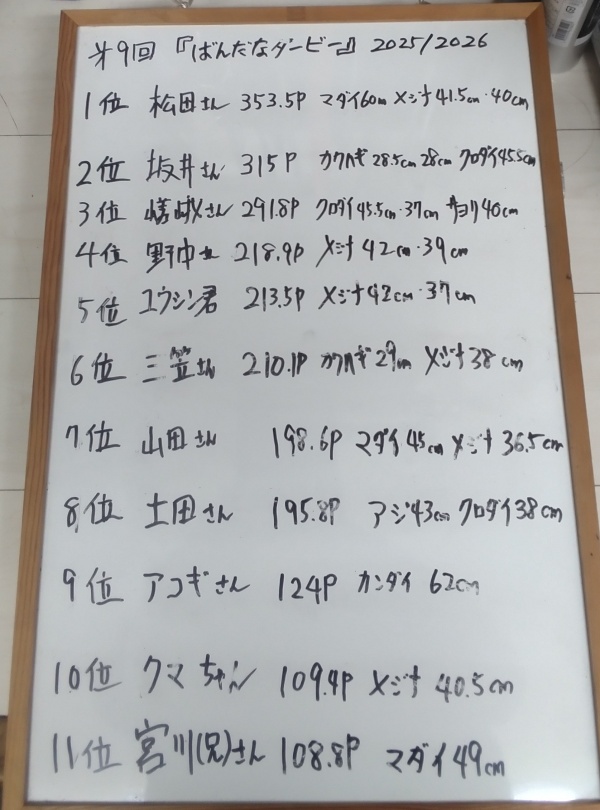 第9回 『ばんだなダービー』 2025/2026
1位 松田さん 353.5P マダイ60cm メジナ41.5cm・40cm
2位 坂井さん 315P カワハギ28.5cm 28cm クロダイ45.5cm
3位 嵯峨さん 291.8P クロダイ45.5cm・37cm サヨリ40cm
4位 野中さん 218.9P メジナ42cm・39cm
5位 ユウシン君 213.5P メジナ42cm・37cm
6位 三笠さん 210.1P カワハギ29cm メジナ38cm
7位 山田さん 198.6P マダイ45cm メジナ36.5cm
8位 土田さん 195.8P アジ43cm クロダイ38cm
9位 アコギさん 124P カンダイ 62cm
10位 クマちゃん 109.4P メジナ 40.5cm
11位 宮川(兄)さん 108.8P マダイ49cm